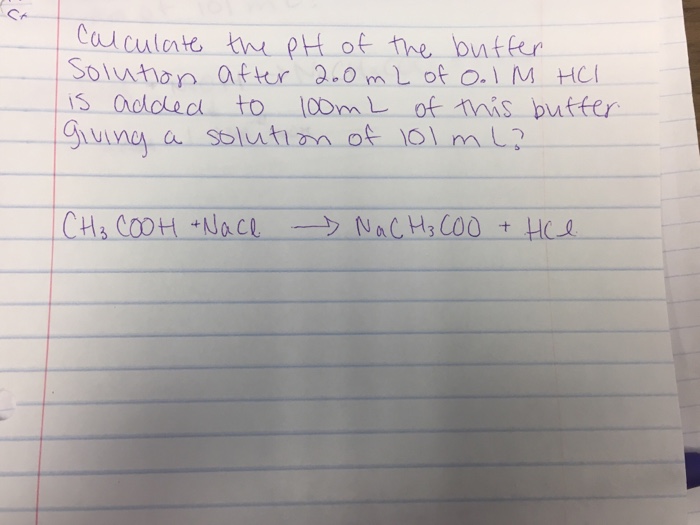 Calculate the pH of the buffer
Solution after 2.0 mL of 0.1 M HCl
is added to 100mL of this buffer.
giving a solution of 101 mL?
CH3 COOH + NaCl → NaCH3COO + HCl